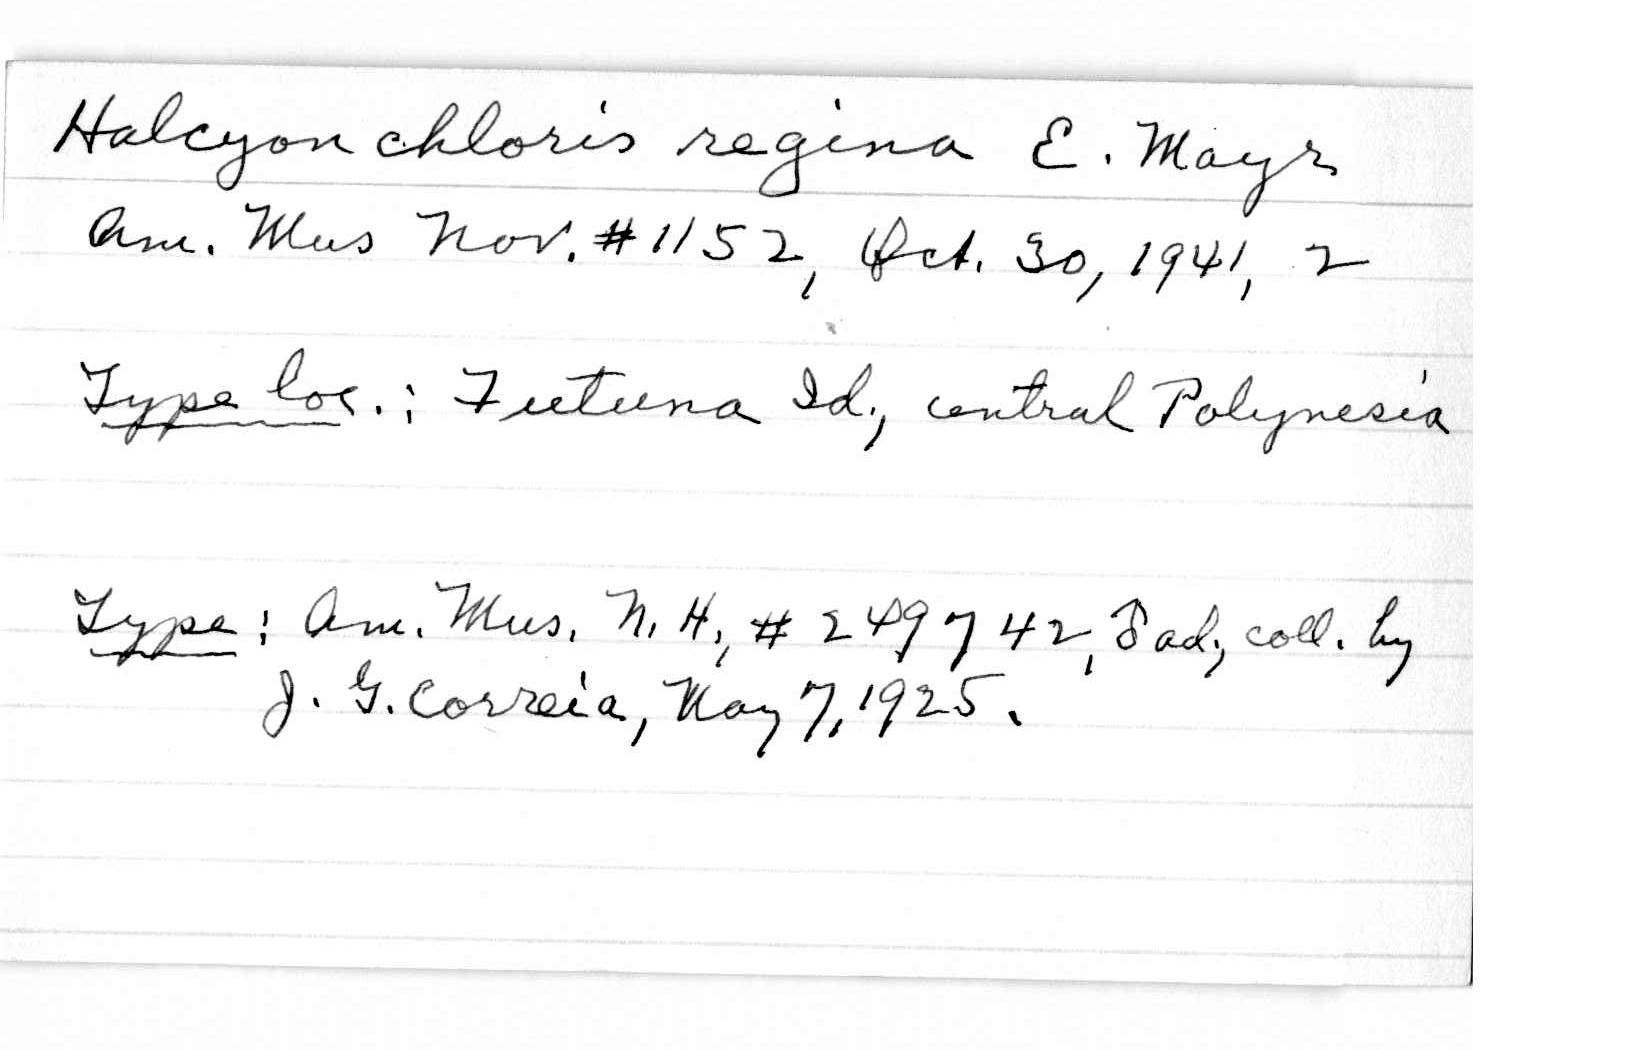 Halcyon chloris regina E. Mayr
Am. Mus Nov. #1152, Oct. 30, 1941, 2
Type loc.: Futuna Id., central Polynesia
Type: Am. Mus. N. H., # 249742, ♂ ad., coll. by
J. G. Correia, May 7, 1925.